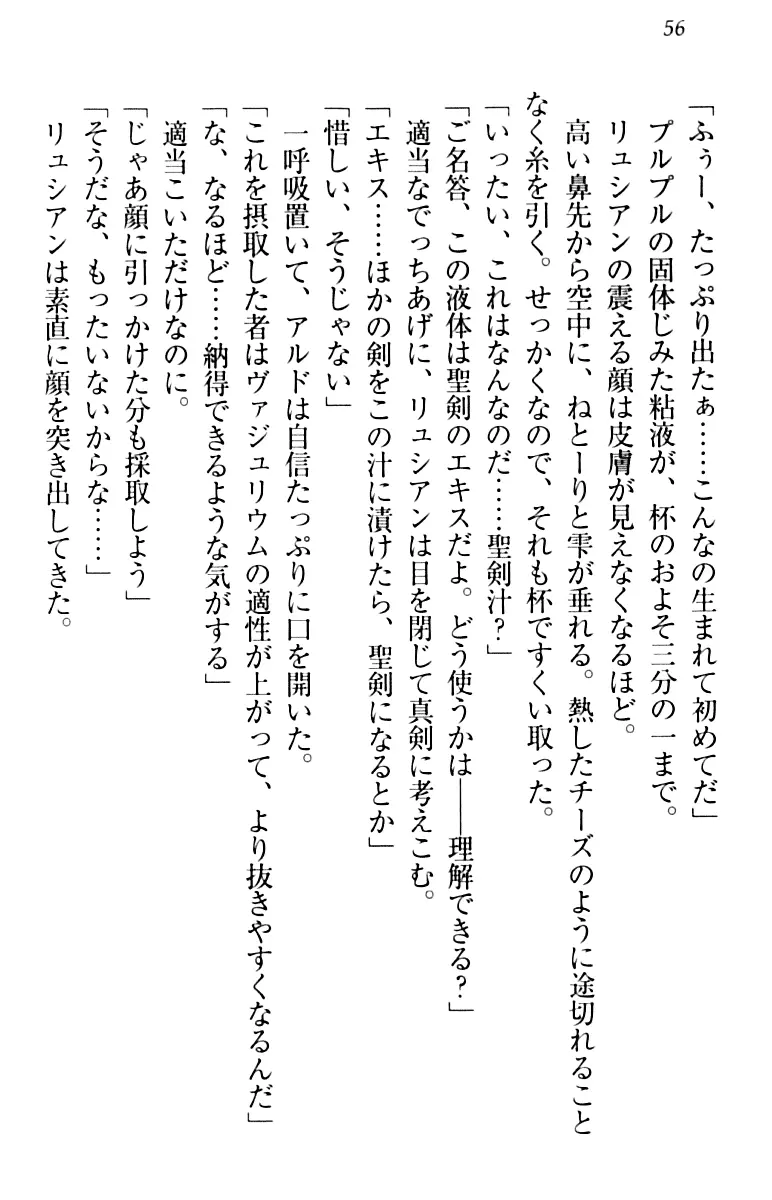 56
「ふぅー、たっぷり出たぁ……こんなの生まれて初めてだ」
プルプルの固体じみた粘液が、杯のおよそ三分の一まで。
リュシアンの震える顔は皮膚が見えなくなるほど。
高い鼻先から空中に、ねとーりと雫が垂れる。熱したチーズのように途切れること
なく糸を引く。せっかくなので、それも杯ですくい取った。
「いったい、これはなんなのだ……聖剣汁？」
「ご名答、この液体は聖剣のエキスだよ。どう使うかは――理解できる？」
適当なでっちあげに、リュシアンは目を閉じて真剣に考えこむ。
「エキス……ほかの剣をこの汁に漬けたら、聖剣になるとか」
「惜しい、そうじゃない」
一呼吸置いて、アルドは自信たっぷりに口を開いた。
「これを摂取した者はヴァジュリウムの適性が上がって、より抜きやすくなるんだ」
「な、なるほど……納得できるような気がする」
適当こいただけなのに。
「じゃあ顔に引っかけた分も採取しよう」
「そうだな、もったいないからな……」
リュシアンは素直に顔を突き出してきた。